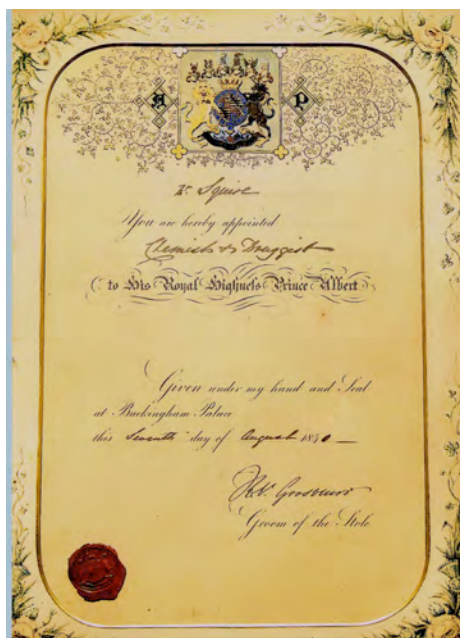 A P
Mr. Squire
You are hereby appointed
Chemist & Druggist
to His Royal Highness Prince Albert
Given under my hand and Seal
at Buckingham Palace
this Seventh day of August 1840
Groom of the Stole